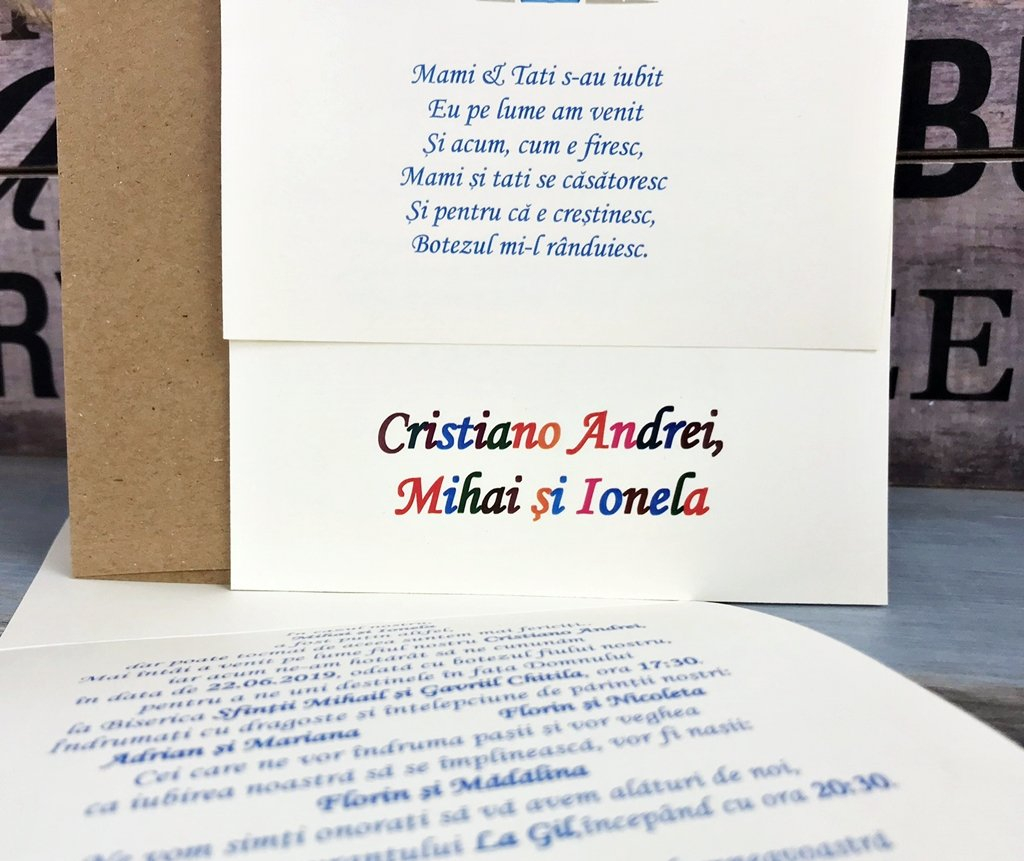 Mami & Tati s-au iubit
Eu pe lume am venit
Și acum, cum e firesc,
Mami și tati se căsătoresc
Și pentru că e creștinesc,
Botezul mi-l rânduiesc.
Cristiano Andrei,
Mihai și Ionela
Mihai si Ionela
a fost puțin altfel,
dar poate tocmai de aceea suntem mai fericiți.
Mai întâi a venit pe lume fiul nostru Cristiano Andrei,
iar acum ne-am hotărât să ne cununăm
în data de 22.06.2019, odată cu botezul fiului nostru,
pentru a ne uni destinele în fața Domnului
la Biserica Sfinții Mihail și Gavriil Chitila, ora 17:30.
Îndrumați cu dragoste și înțelepciune de părinții noștri:
Adrian și Mariana Florin și Nicoleta
Cei care ne vor îndruma pașii și vor veghea
ca iubirea noastră să se împlinească, vor fi nașii:
Florin și Mădălina
Ne vom simți onorați să vă avem alături de noi,
La Gil, începând cu ora 20:30.
B
R
E